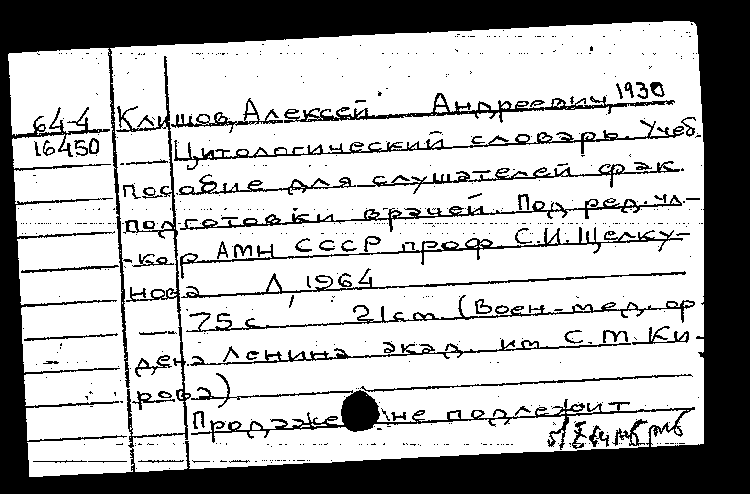 64-4 Климов, Алексей Андреевич, 1930
16450 Цитологический словарь. Учеб.
пособие для слушателей фак.
подготовки врачей. Под ред. чл-
-кор АМН СССР проф. С.И. Щелку-
нова Л, 1964
75 с. 21 см. (Воен-мед. ор-
дена Ленина акад. им С.М. Ки-
рова)
Продаже не подлежит